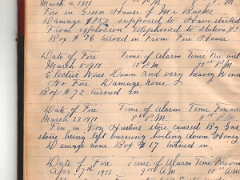 March 4 1911
Fire in Green House of Mc Bucke
Damage $ supposed to have started
from explosion telephoned to station
Box # 26 turned in from Fire House
Date of Fire Time of Alarm Time Fire out
March 5-1911 P.M.
Electric Wires Down and very heavy Wind
No Fire Damage none
Box # 72 turned in
Date of Fire Time of Alarm Time Fire out
March 23-1911 8 P.M. 8 P.M.
Fire in store caused By Gas
stove being left burning boiling down
Damage none Box # 17 turned in
Date of Fire Time of Alarm Time Fire out
April 7th 1911 A.M. 10 A.M.